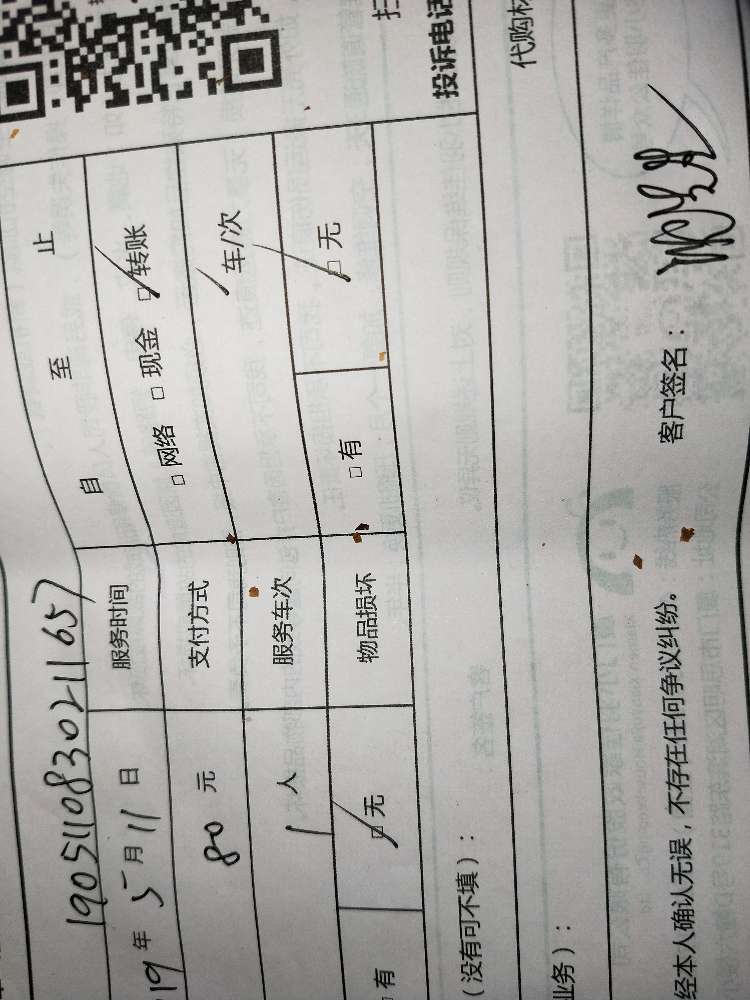 190511083021657
19年 5月11日 服务时间 自 至 止
80 元 支付方式 □网络 □现金 ☑转账
1 人 服务车次 1 车/次
有 ☑无 物品损坏 □有 ☑无
(没有可不填):
投诉电话
业务):
代购
经本人确认无误，不存在任何争议纠纷。 客户签名: